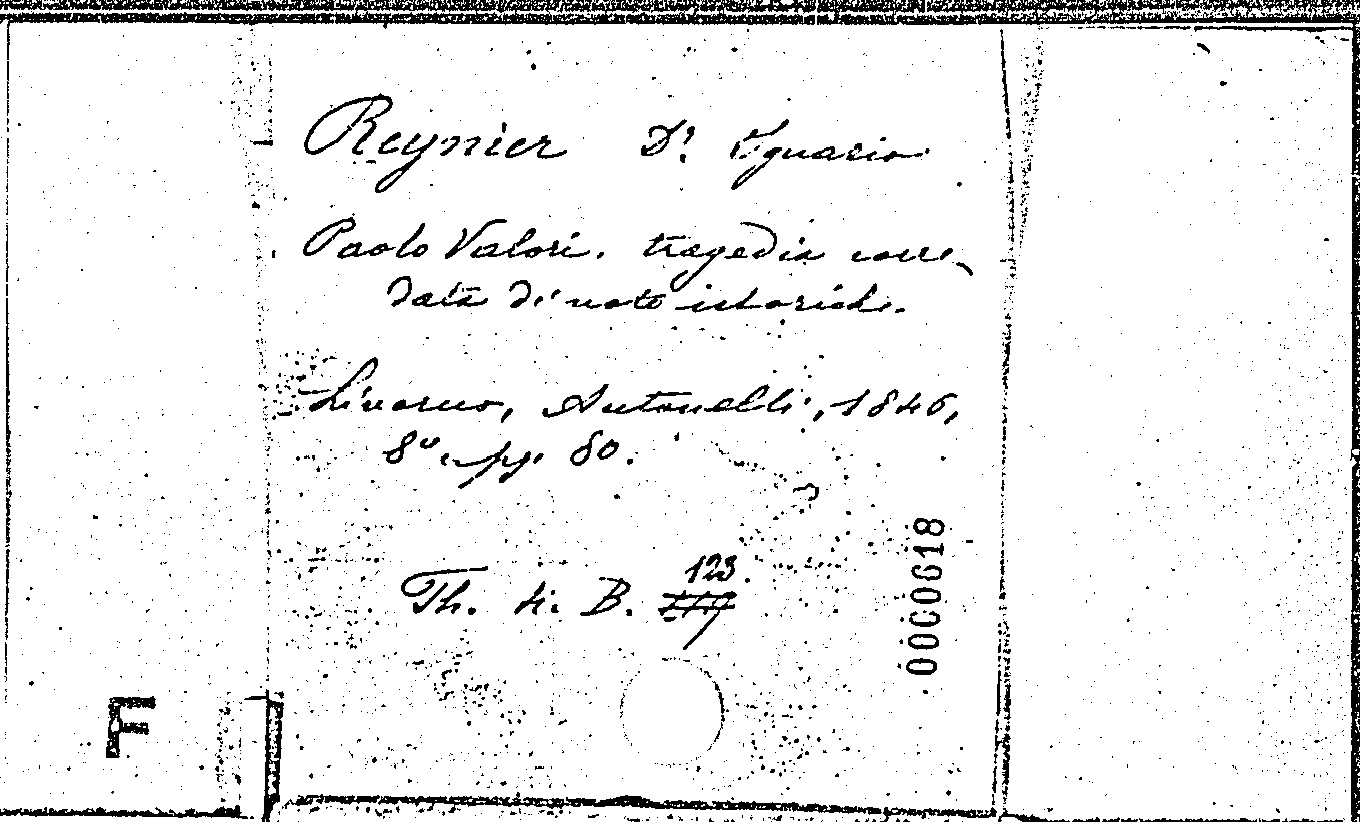 Reynier Dr. Ignazio
Paolo Valori. tragedia corre-
data di note istoriche.
Livorno, Antonelli, 1846,
8° in pp. 80.
Th. it. B. 123.
0000618
F